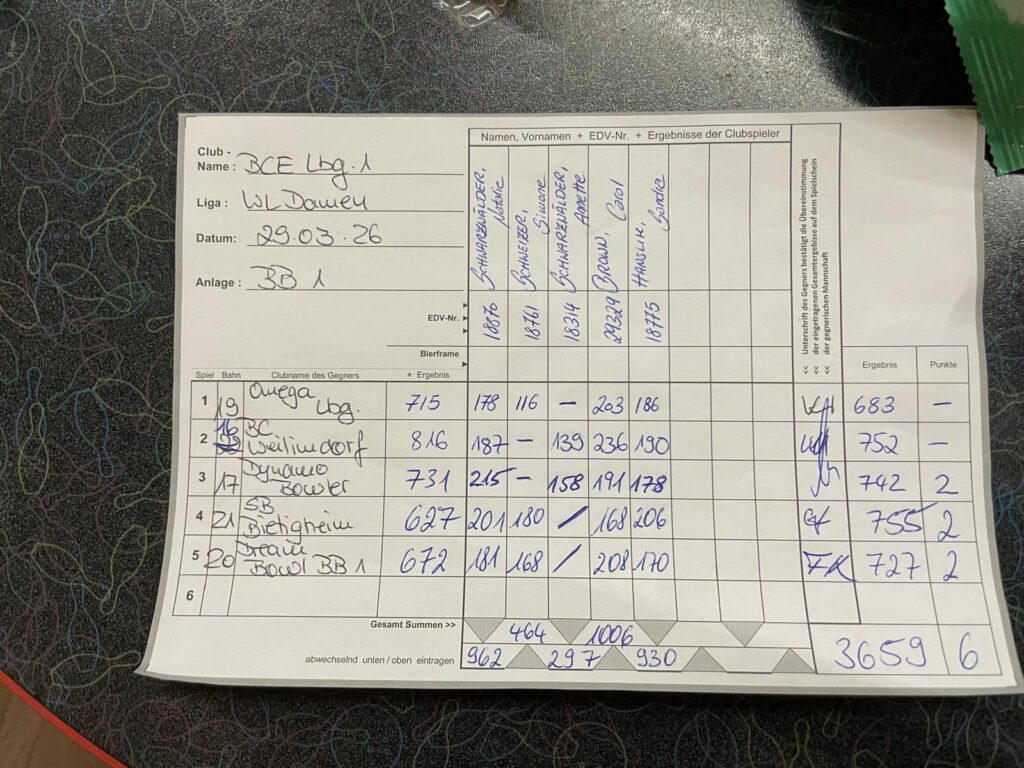 Namen, Vornamen + EDV-Nr. + Ergebnisse der Clubspieler
Club -
Name : BCE Lbg. 1
Liga : WL Damen
Datum: 29.03.26
Anlage : BB 1
SCHWARZWÄLDER, Natalie
SCHWEIZER, Simone
SCHWARZWÄLDER, Annette
BROWN, Carol
HANSLIK, Sandra
<< Unterschrift des Gegners bestätigt die Übereinstimmung
<< der eingetragenen Gesamtergebisse auf dem Spielschein
<< der gegnerischen Mannschaft
EDV-Nr. 18876 18761 18314 29329 18775
Bierframe
Spiel Bahn Clubname des Gegners + Ergebnis Ergebnis Punkte
1 19 Omega Lbg. 715 178 116 – 203 186 683 –
2 16 BC Weilimdorf 816 187 – 139 236 190 752 –
3 17 Dynamo Bowler 731 215 – 158 191 178 742 2
4 21 SB Bietigheim 627 201 180 / 168 206 755 2
5 20 Dream Bowl BB 1 672 181 168 / 208 170 FK 727 2
6
Gesamt Summen >> 464 1006
abwechselnd unten / oben eintragen 962 297 930 3659 6